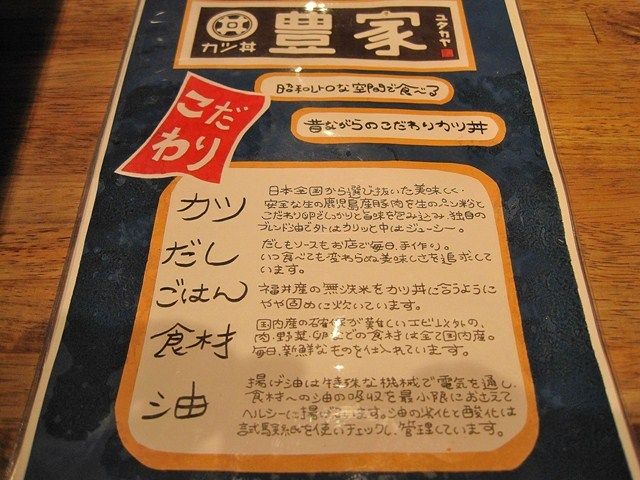 カツ丼 豊家 ユタカヤ
昭和レトロな空間で食べる
昔ながらのこだわりカツ丼
こだわり
カツ
日本全国から選び抜いた美味しく、
安全な生の鹿児島産豚肉を生のパン粉と
こだわり卵でしっかりと旨味を包み込み、独自の
ブレンド油で外はカリッと中はジューシー。
だし
だしもソースもお店で毎日、手作り。
いつ食べても変わらぬ美味しさを追求して
います。
ごはん
福井産の無洗米をカツ丼に合うように
やや固めに炊いています。
食材
国内産の確保が難しいエビ以外の、
肉・野菜・卵などの食材は全て国内産。
毎日、新鮮なものを仕入れています。
油
揚げ油は特殊な機械で電気を通し、
食材への油の吸収を最小限におさえて
ヘルシーに揚げます。油の劣化と酸化は
試験紙を使いチェックし、管理しています。